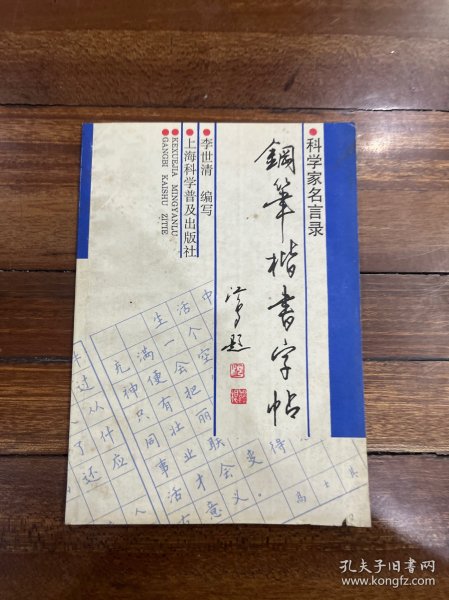 科学家名言录
鋼筆楷書字帖
李世清 编写
上海科学普及出版社
KEXUEJIA MINGYANLU
GANGBI KAISHU ZITIE
生活中
充满一个
神便会空
只有把
同壮丽
事业联
活才会变得
意义。
过从什
了还应
人
孔夫子旧书网
www.kongfz.com